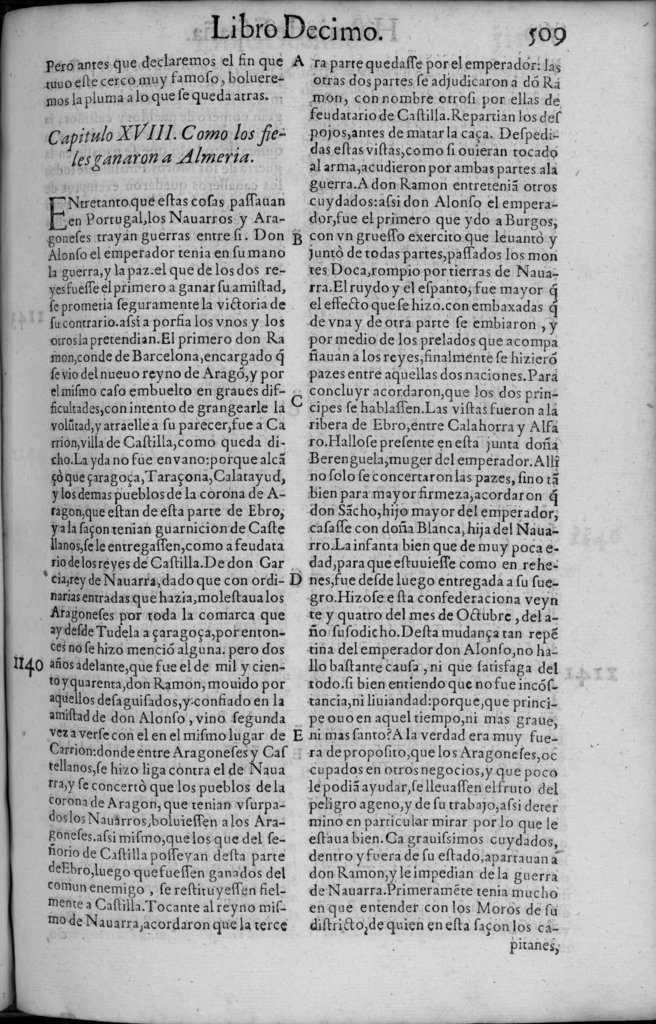 Libro Decimo. 509
Pero antes que declaremos el fin que
tuuo este cerco muy famoso, boluere-
mos la pluma a lo que se queda atras.
Capitulo XVIII. Como los fie-
les ganaron a Almeria.
ENtretanto que estas cosas passauan
en Portugal, los Nauarros y Ara-
goneses trayan guerras entre si. Don
Alonso el emperador tenia en su mano
la guerra, y la paz. el que de los dos re-
yes fuesse el primero a ganar su amistad,
se prometia seguramente la victoria de
su contrario. assi a porfia los vnos y los
otros la pretendian. El primero don Ra
mon, conde de Barcelona, encargado q̃
se vio del nueuo reyno de Aragõ, y por
el mismo caso embuelto en graues dif-
ficultades, con intento de grangearle la
volũtad, y atraelle a su parecer, fue a Ca
rrion, villa de Castilla, como queda di-
cho. La yda no fue en vano: porque alcã
çò que çaragoça, Taraçona, Calatayud,
y los demas pueblos de la corona de A-
ragon, que estan de esta parte de Ebro,
y a la saçon tenian guarnicion de Caste
llanos, se le entregassen, como a feudata
rio de los reyes de Castilla. De don Gar
cia, rey de Nauarra, dado que con ordi-
narias entradas que hazia, molestaua los
Aragoneses por toda la comarca que
ay desde Tudela a çaragoça, por enton-
ces no se hizo menciõ alguna. pero dos
1140 años adelante, que fue el de mil y cien-
to y quarenta, don Ramon, mouido por
aquellos desaguisados, y confiado en la
amistad de don Alonso, vino segunda
vez a verse con el en el mismo lugar de
Carrion: donde entre Aragoneses y Cas
tellanos, se hizo liga contra el de Naua
rra, y se concertò que los pueblos de la
corona de Aragon, que tenian vsurpa-
dos los Nauarros, boluiessen a los Ara-
goneses. assi mismo, que los que del se-
ñorio de Castilla posseyan desta parte
de Ebro, luego que fuessen ganados del
comun enemigo, se restituyessen fiel-
mente a Castilla. Tocante al reyno mis-
mo de Nauarra, acordaron que la terce
A
B
C
D
E
ra parte quedasse por el emperador: las
otras dos partes se adjudicaron a dõ Ra
mon, con nombre otrosi por ellas de
feudatario de Castilla. Repartian los des
pojos, antes de matar la caça. Despedi-
das estas vistas, como si ouieran tocado
al arma, acudieron por ambas partes a la
guerra. A don Ramon entreteniã otros
cuydados: assi don Alonso el empera-
dor, fue el primero que ydo a Burgos,
con vn gruesso exercito que leuantò y
juntò de todas partes, passados los mon
tes Doca, rompio por tierras de Naua-
rra. El ruydo y el espanto, fue mayor q̃
el effecto que se hizo. con embaxadas q̃
de vna y de otra parte se embiaron, y
por medio de los prelados que acompa
ñauan a los reyes, finalmente se hizierõ
pazes entre aquellas dos naciones. Para
concluyr acordaron, que los dos prin-
cipes se hablassen. Las vistas fueron a la
ribera de Ebro, entre Calahorra y Alfa
ro. Hallose presente en esta junta doña
Berenguela, muger del emperador. Alli
no solo se concertaron las pazes, sino tã
bien para mayor firmeza, acordaron q̃
don Sãcho, hijo mayor del emperador,
casasse con doña Blanca, hija del Naua-
rro. La infanta bien que de muy poca e-
dad, para que estuuiesse como en rehe-
nes, fue desde luego entregada a su sue-
gro. Hizose esta confederaciona veyn
te y quatro del mes de Octubre, del a-
ño susodicho. Desta mudança tan repẽ
tina del emperador don Alonso, no ha-
llo bastante causa, ni que satisfaga del
todo. si bien entiendo que no fue incõs-
tancia, ni liuiandad: porque, que princi-
pe ouo en aquel tiempo, ni mas graue,
ni mas santo? A la verdad era muy fue-
ra de proposito, que los Aragoneses, oc
cupados en otros negocios, y que poco
le podiã ayudar, se lleuassen el fruto del
peligro ageno, y de su trabajo, assi deter
mino en particular mirar por lo que le
estaua bien. Ca grauissimos cuydados,
dentro y fuera de su estado, apartauan a
don Ramon, y le impedian de la guerra
de Nauarra. Primeramẽte tenia mucho
en que entender con los Moros de su
districto, de quien en esta saçon los ca-
pitanes,